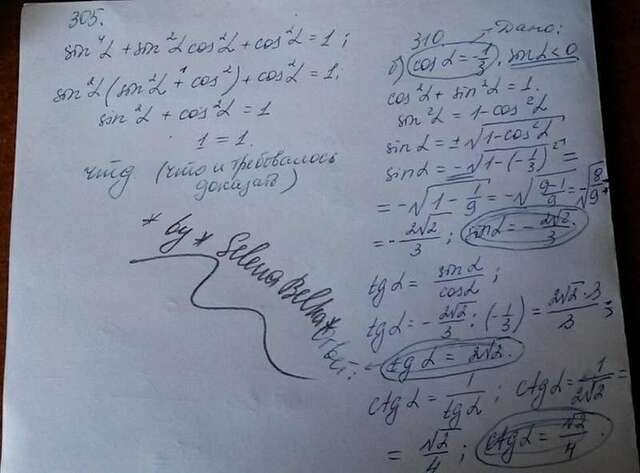 305.
sin⁴α + sin²α cos²α + cos²α = 1;
sin²α (sin²α + cos²) + cos²α = 1.
1
sin²α + cos²α = 1
1 = 1.
чтд (что и требовалось
доказать)
* by * Selena
310
Дано:
б) cos α = -1/3, sin α < 0
cos²α + sin²α = 1.
sin²α = 1 - cos²α
sin α = ±√(1 - cos²α)
sin α = -√(1 - (-1/3)²) =
= -√(1 - 1/9) = -√((9-1)/9) = -√(8/9) =
= -2√2/3; sin α = -2√2/3.
tg α = sin α/cos α;
tg α = -2√2/3 : (-1/3) = 2√2·3/3;
tg α = 2√2.
ctg α = 1/tg α; ctg α = 1/2√2 =
= √2/4; ctg α = √2/4